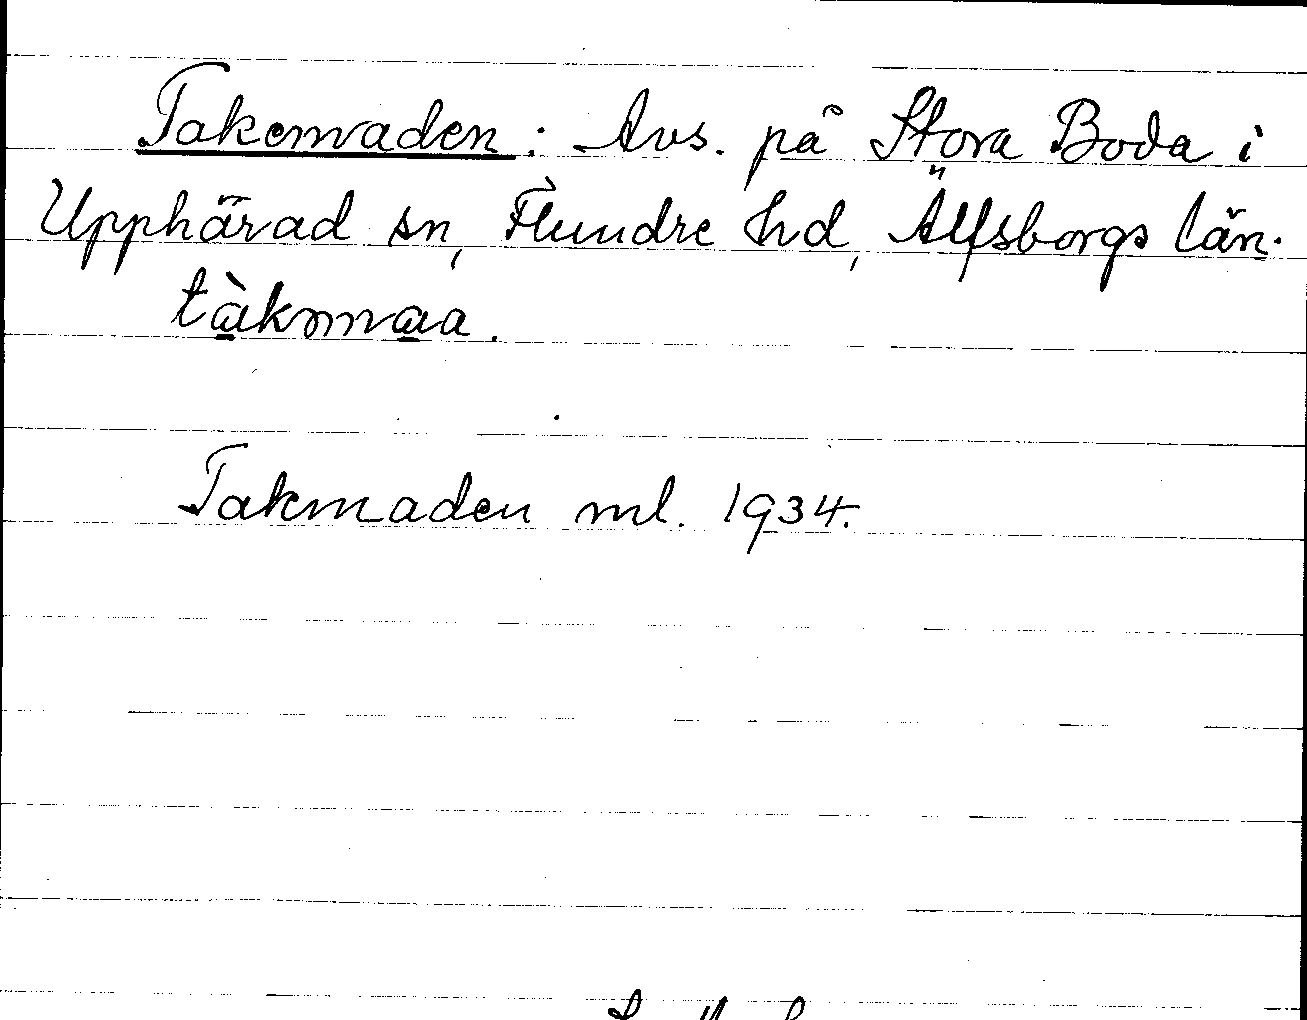 Takemaden: Avs. på Stora Boda i
Upphärad sn, Flundre hd, Älfsborgs län.
tàkmmaa.
Takmaden ml. 1934.